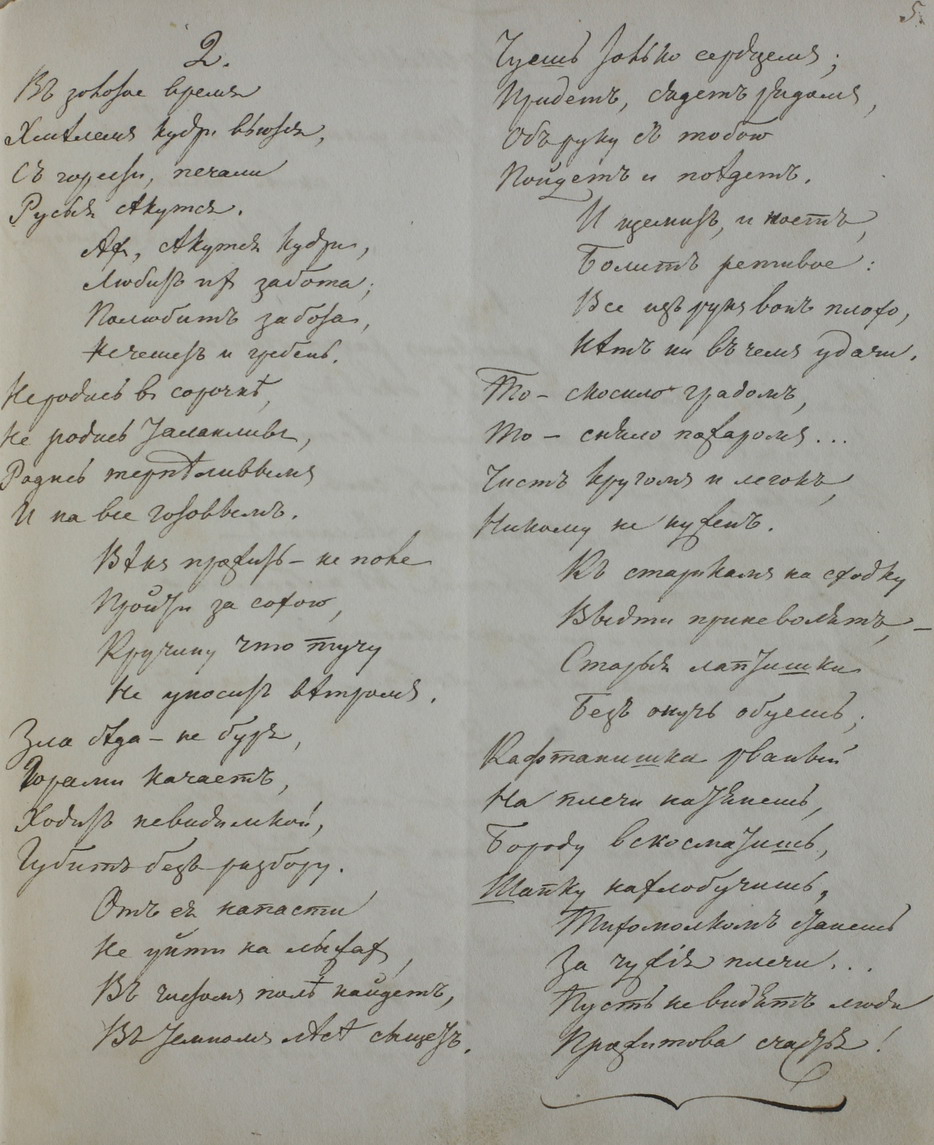 5.
2.
Въ золотое время
Хмѣлемъ кудри вьются,
Съ горести, печали
Русыя сѣкутся.
Ах, сѣкутся кудри,
Любитъ их забота;
Полюбитъ забота,
Не чешетъ и гребень.
Не родись въ сорочкѣ,
Не родись таланливъ,
Родись терпѣливымъ
И на все готовымъ.
Вѣкъ прожить – не поле
Пройти за сохою,
Кручину что тучу
Не уноситъ вѣтромъ.
Зла бѣда – не буря,
Горами качаетъ,
Ходитъ невидимкой,
Губитъ безъ разбору.
Отъ ея напасти
Не уйти на лыжах,
Въ чистомъ полѣ найдетъ,
Въ темномъ лѣсѣ сыщетъ.
Чуешь только сердцемъ;
Придетъ, сядетъ рядомъ,
Объ руку съ тобою
Пойдетъ и поѣдетъ.
И щемитъ, и ноетъ,
Болитъ ретивое:
Все изъ рукъ вонъ плохо,
Нѣтъ ни въ чемъ удачи.
То – скосило градомъ,
То – сняло пожаромъ...
Чистъ кругомъ и легокъ,
Никому не нуженъ.
Къ старикамъ на сходку
Выдти приневолятъ, –
Старыя лаптишки
Безъ онучь обуешь;
Кафтанишка рваный
На плечи натянешь,
Бороду вскосматишь,
Шапку нахлобучишь,
Тихомолкомъ станешь
За чужія плечи...
Пусть не видятъ люди
Прожитова счастья!